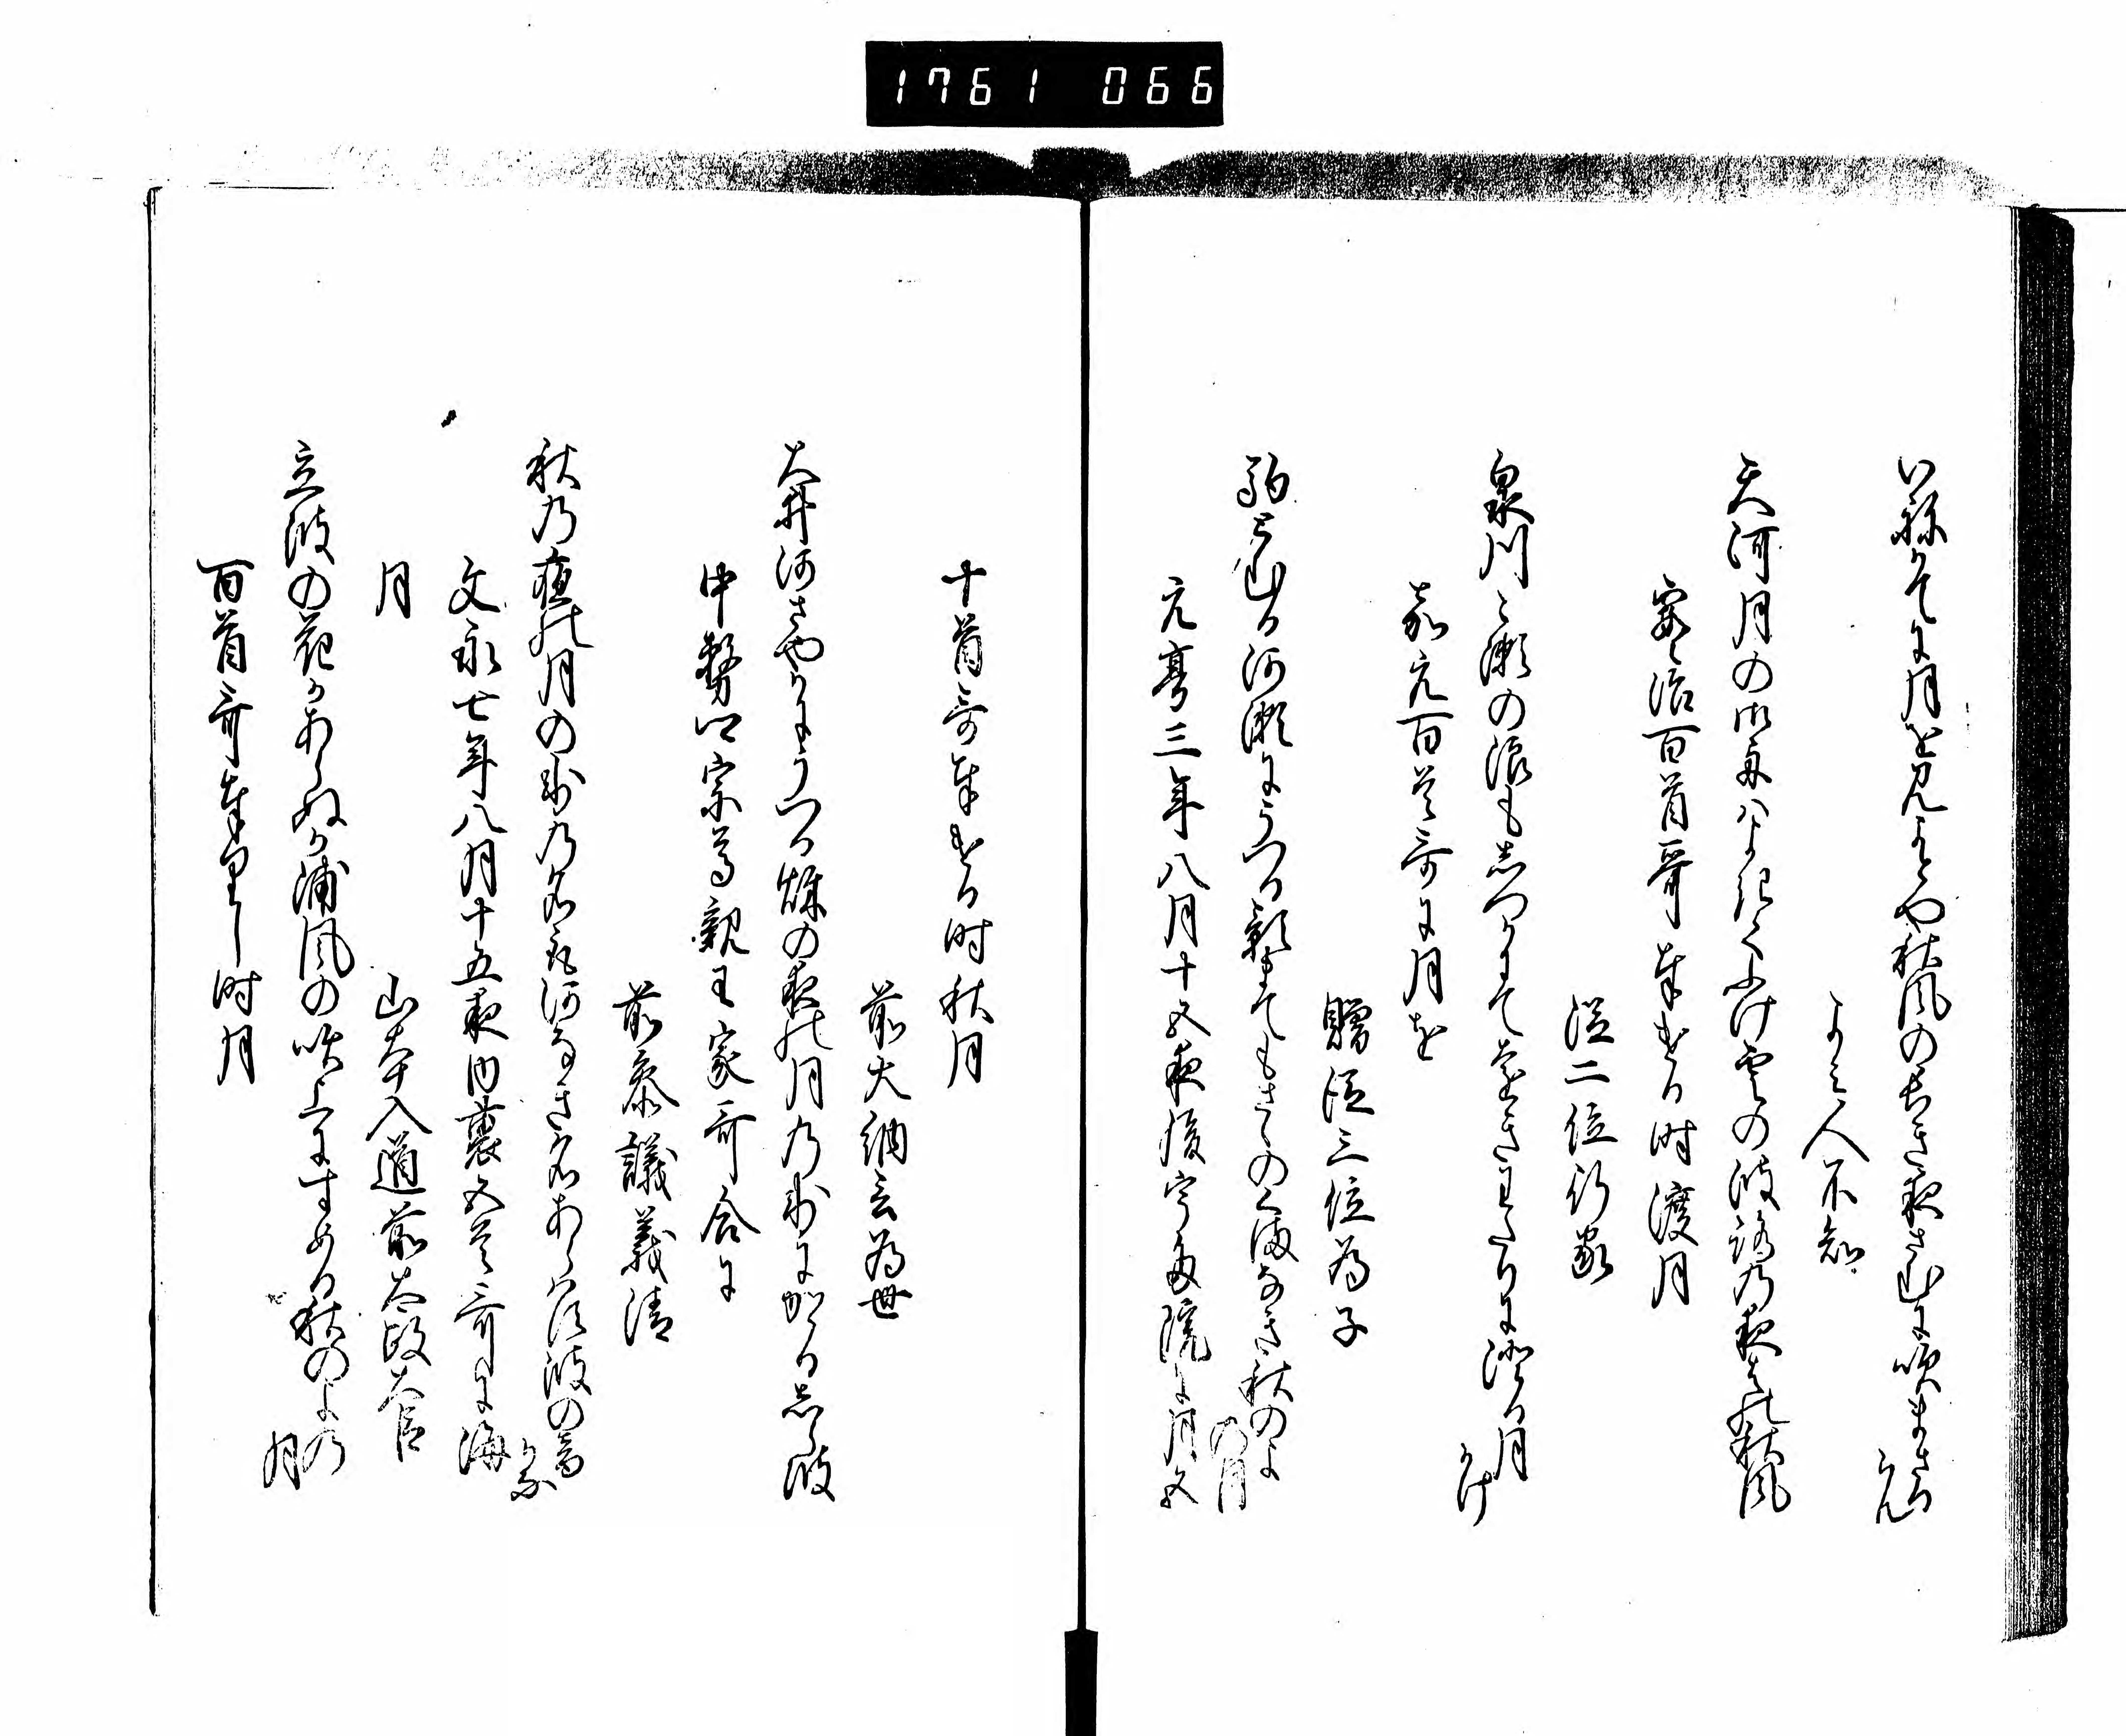 1761 066
いねかてに月を見よとや秋風の長き夜さむに吹まさるらん
よみ人不知
天河月の御舟はよきてふけ雲の波路の夜はの秋風
宝治百首哥奉ける時渡月
従二位行家
泉川こ瀬の浪もしつかにて
月かけ
嘉元百首哥に月を
贈従三位為子
河瀬にうつる影まてもさはのくまなき秋のよの月
元亨三年八月十五夜後宇多院に月五
十首哥奉ける時秋月
前大納言為世
大井河さやかにうつる秋の夜の月の御にかゝるしら波
中務卿宗尊親王家哥合に
前参議義清
秋の夜の月の影の名取河なき名あらはす波の音かな
文永七年八月十五夜内裏五首哥に海
月
山本入道前太政大臣
立波の花かあらぬか浦風の吹上にすめる秋のよの月
百首哥奉りし時月